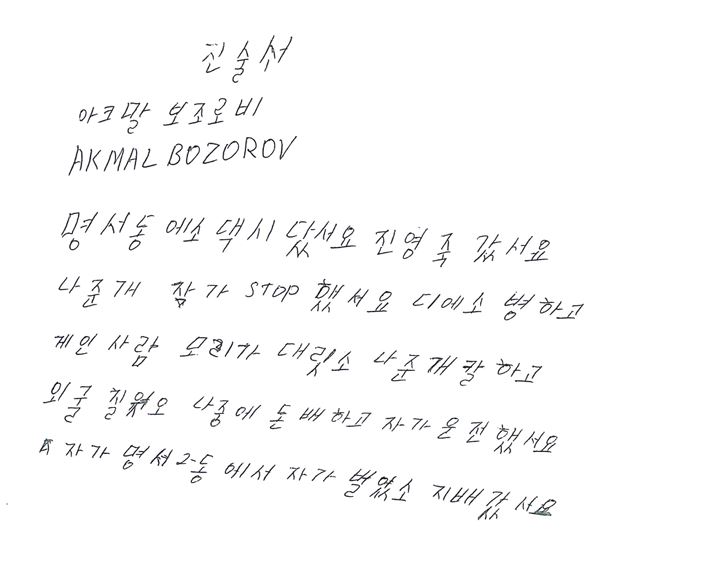 진술서
아크말 보조로비
AKMAL BOZOROV
명서동 에소 댁시 닸서요 진영 죽 갔서요
나준개 잠가 STOP 했서요 디에소 병하고
게인 사람 모리가 대릿소 나준개칼 하고
외굴 질웠오 나중에 돈 배하고 자가 운전했서요
자가 명서2동 에서 자가 벌았소 지배 갔서요